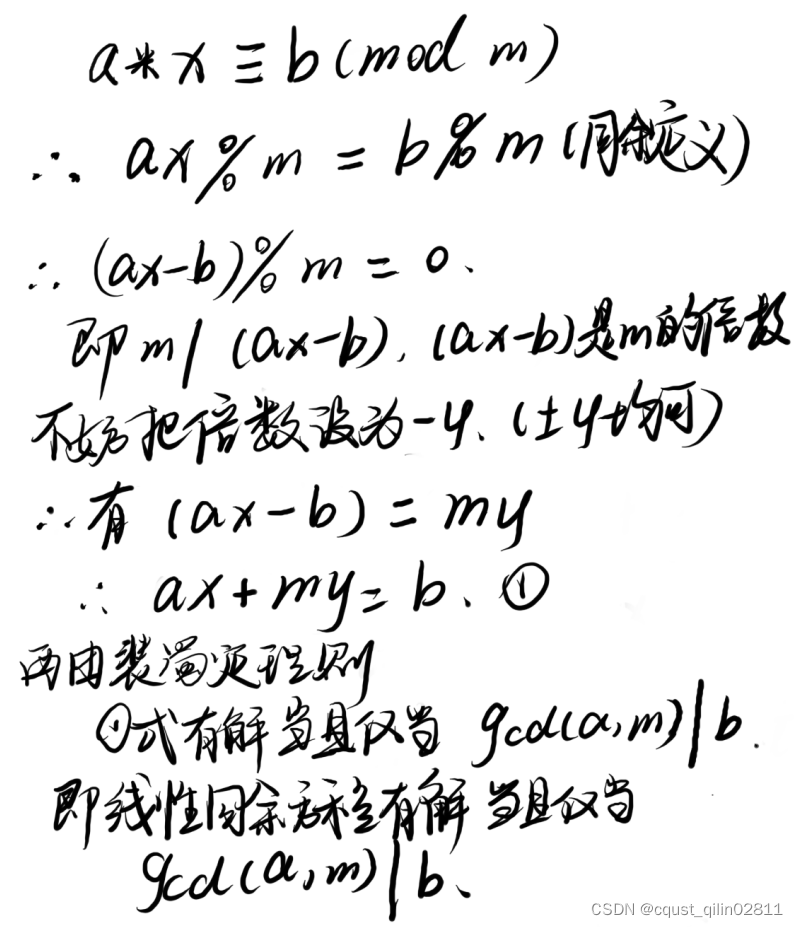 a*x≡b(mod m)
∴ ax%m=b%m(同余定义)
∴ (ax-b)%m=0、
即m|(ax-b),(ax-b)是m的倍数
不妨把倍数设为-y、(±y均可)
∴有(ax-b)=my
∴ ax+my=b、①
再由裴蜀定理则
①式有解当且仅当 gcd(a,m)|b.
即线性同余方程有解当且仅当
gcd(a,m)|b、
CSDN @cqust_qilin02811